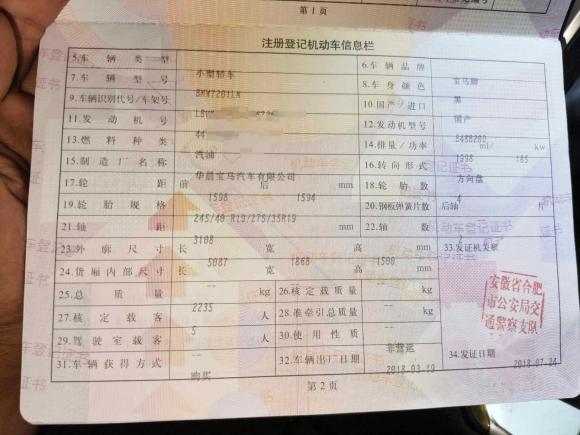 第1页
注册登记机动车信息栏
5.车辆类型 小型轿车 6.车辆品牌 宝马牌
7.车辆型号 BMW7201LM 8.车身颜色 黑
9.车辆识别代号/车架号 LBV 10.国产/进口 国产
11.发动机号 44 12.发动机型号
13.燃料种类 汽油 14.排量/功率 1998 ml/ 185 kw
15.制造厂名称 华晨宝马汽车有限公司 16.转向形式 方向盘
17.轮距 前 1598 后 1594 mm 18.轮胎数 4
19.轮胎规格 245/40 R19/275/35R19 20.钢板弹簧片数 后轴 片
21.轴距 3108 mm 22.轴数
23.外廓尺寸 长 5087 宽 1868 高 1500 mm 33.发证机关章
24.货厢内部尺寸 长 -- 宽 -- 高 -- mm
25.总质量 2235 kg 26.核定载质量 -- kg
27.核定载客 5 人 28.准牵引总质量 -- kg
29.驾驶室载客 -- 人 30.使用性质 非营运
31.车辆获得方式 购买 32.车辆出厂日期 2018.03.19 34.发证日期 2018.07.24
安徽省合肥
市公安局交
通警察支队
第2页